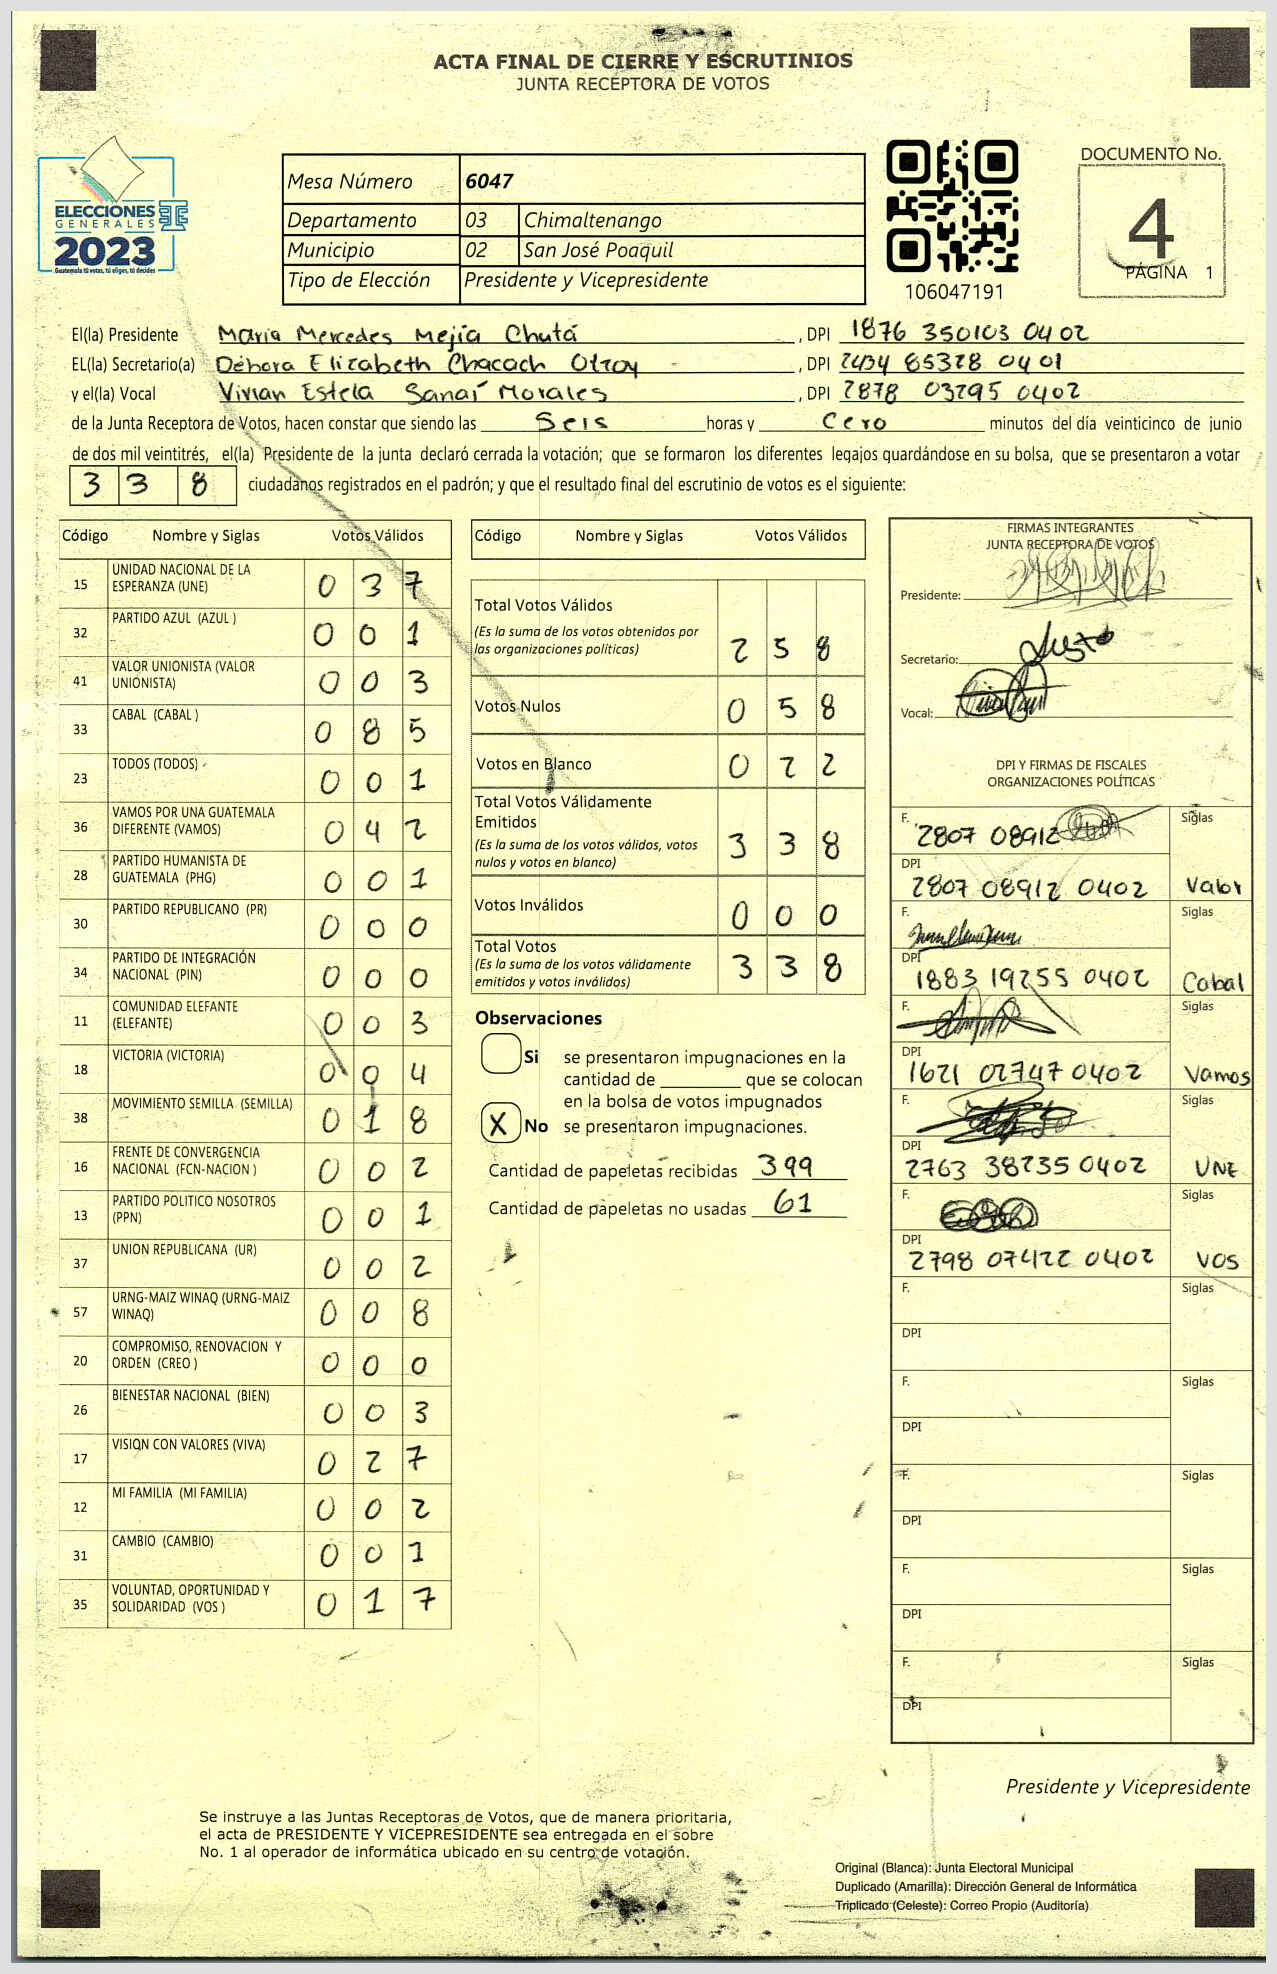 ACTA FINAL DE CIERRE Y ESCRUTINIOS
JUNTA RECEPTORA DE VOTOS
ELECCIONES
GENERALES
2023
Guatemala tú votas, tú eliges, tú decides
Mesa Número 6047
Departamento 03 Chimaltenango
Municipio 02 San José Poaquil
Tipo de Elección Presidente y Vicepresidente
106047191
DOCUMENTO No.
4
PÁGINA 1
El(la) Presidente Maria Mercedes Mejía Chutá, DPI 1876 350103 0402
EL(la) Secretario(a) Débora Elizabeth Chacach Otzoy, DPI 2434 85328 0401
y el(la) Vocal Vivian Estela Sanaí Morales, DPI 2878 03295 0402
de la Junta Receptora de Votos, hacen constar que siendo las Seis horas y Cero minutos del día veinticinco de junio
de dos mil veintitrés, el(la) Presidente de la junta declaró cerrada la votación; que se formaron los diferentes legajos guardándose en su bolsa, que se presentaron a votar
3 3 8 ciudadanos registrados en el padrón; y que el resultado final del escrutinio de votos es el siguiente:
Código Nombre y Siglas Votos Válidos
15 UNIDAD NACIONAL DE LA ESPERANZA (UNE) 0 3 7
32 PARTIDO AZUL (AZUL ) 0 0 1
41 VALOR UNIONISTA (VALOR UNIONISTA) 0 0 3
33 CABAL (CABAL ) 0 8 5
23 TODOS (TODOS) 0 0 1
36 VAMOS POR UNA GUATEMALA DIFERENTE (VAMOS) 0 4 2
28 PARTIDO HUMANISTA DE GUATEMALA (PHG) 0 0 1
30 PARTIDO REPUBLICANO (PR) 0 0 0
34 PARTIDO DE INTEGRACIÓN NACIONAL (PIN) 0 0 0
11 COMUNIDAD ELEFANTE (ELEFANTE) 0 0 3
18 VICTORIA (VICTORIA) 0 0 4
38 MOVIMIENTO SEMILLA (SEMILLA) 0 1 8
16 FRENTE DE CONVERGENCIA NACIONAL (FCN-NACION ) 0 0 2
13 PARTIDO POLITICO NOSOTROS (PPN) 0 0 1
37 UNION REPUBLICANA (UR) 0 0 2
57 URNG-MAIZ WINAQ (URNG-MAIZ WINAQ) 0 0 8
20 COMPROMISO, RENOVACION Y ORDEN (CREO ) 0 0 0
26 BIENESTAR NACIONAL (BIEN) 0 0 3
17 VISION CON VALORES (VIVA) 0 2 7
12 MI FAMILIA (MI FAMILIA) 0 0 2
31 CAMBIO (CAMBIO) 0 0 1
35 VOLUNTAD, OPORTUNIDAD Y SOLIDARIDAD (VOS ) 0 1 7
Código Nombre y Siglas Votos Válidos
Total Votos Válidos
(Es la suma de los votos obtenidos por
las organizaciones políticas) 2 5 8
Votos Nulos 0 5 8
Votos en Blanco 0 2 2
Total Votos Válidamente
Emitidos
(Es la suma de los votos válidos, votos
nulos y votos en blanco) 3 3 8
Votos Inválidos 0 0 0
Total Votos
(Es la suma de los votos válidamente
emitidos y votos inválidos) 3 3 8
Observaciones
Si se presentaron impugnaciones en la
cantidad de ________ que se colocan
en la bolsa de votos impugnados
X No se presentaron impugnaciones.
Cantidad de papeletas recibidas 399
Cantidad de papeletas no usadas 61
FIRMAS INTEGRANTES
JUNTA RECEPTORA DE VOTOS
Presidente:
Secretario:
Vocal:
DPI Y FIRMAS DE FISCALES
ORGANIZACIONES POLÍTICAS
F. 2807 08912 Siglas
DPI 2807 08912 0402 Valor
F. Siglas
DPI 1883 19255 0402 Cabal
F. Siglas
DPI 1621 02747 0402 Vamos
F. Siglas
DPI 2763 38235 0402 UNE
F. Siglas
DPI 2798 07422 0402 VOS
F. Siglas
DPI
F. Siglas
DPI
F. Siglas
DPI
F. Siglas
DPI
F. Siglas
DPI
Presidente y Vicepresidente
Se instruye a las Juntas Receptoras de Votos, que de manera prioritaria,
el acta de PRESIDENTE Y VICEPRESIDENTE sea entregada en el sobre
No. 1 al operador de informática ubicado en su centro de votación.
Original (Blanca): Junta Electoral Municipal
Duplicado (Amarilla): Dirección General de Informática
Triplicado (Celeste): Correo Propio (Auditoría)